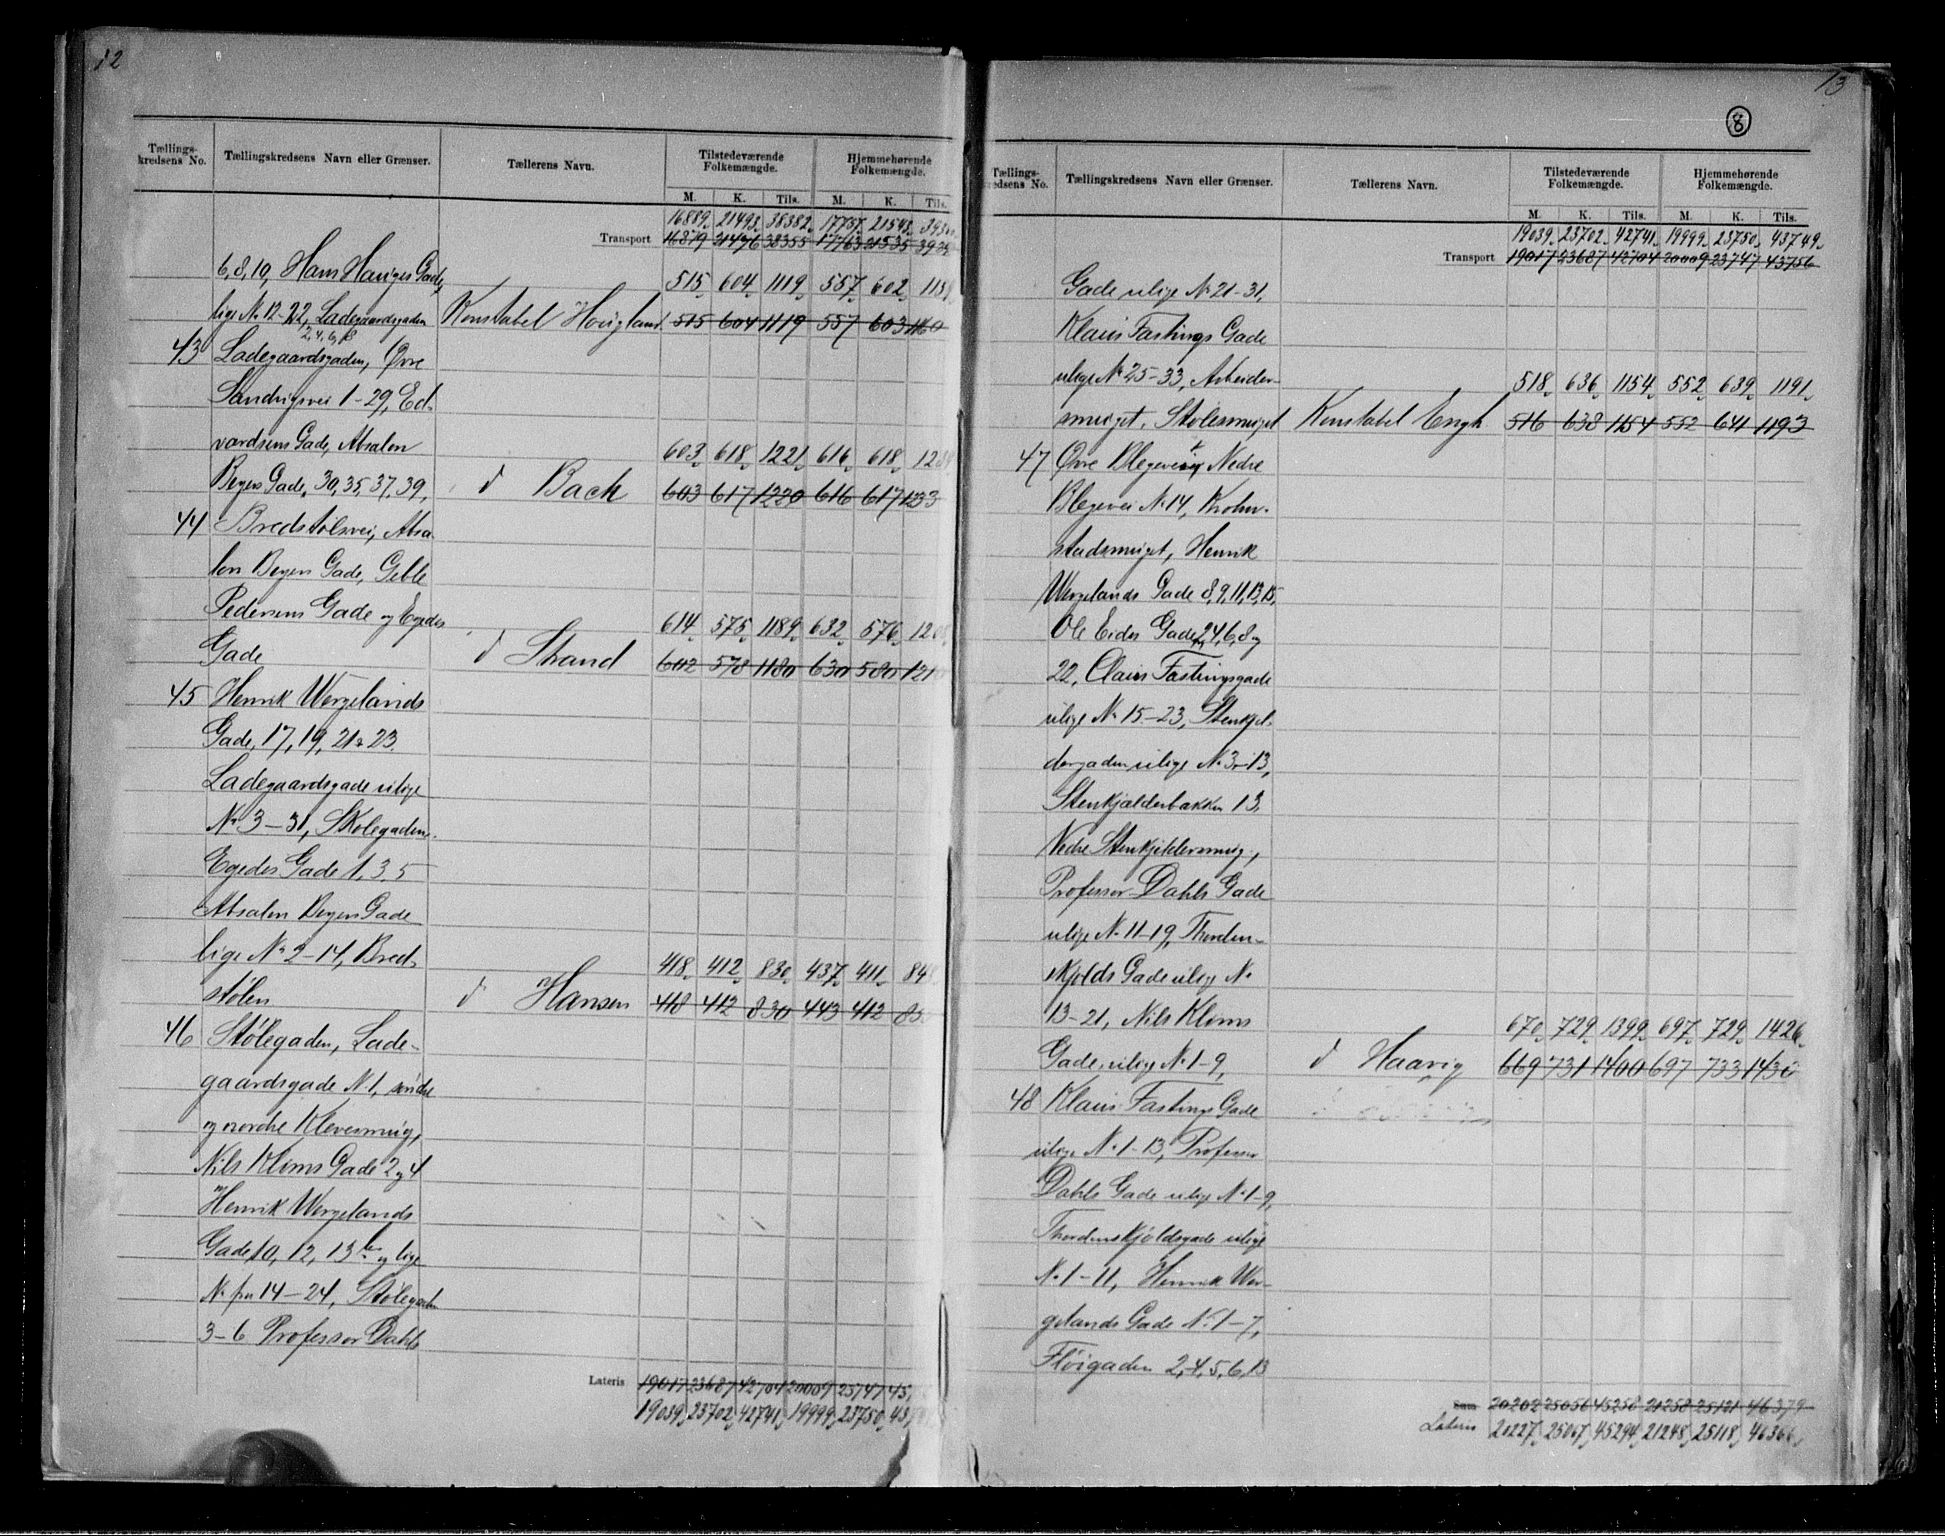 12
Tællings-
kredsens No. Tællingskredsens Navn eller Grænser. Tællerens Navn. Tilstedeværende Folkemængde. Hjemmehørende Folkemængde.
M. K. Tils. M. K. Tils.
16889 21493 38382 17757 21543
Transport 16879 21476 38355 17763 21535
6, 8, 10, Hans Hauges Gade 515 604 1119 557 602
lige No 12-22, Ladegaardsgaden Konstabel Hougland 515 604 1119 557 603 1160
2, 4, 6, 8
43 Ladegaardsgaden, Øvre
Sandvigsvei 1-29, Ed-
vardsens Gade, Absalon 603 618 1221 616 618
Beyers Gade, 30, 35, 37, 39, d Back 603 617 1220 616 617 1233
44 Bredstølsvei, Absa-
lon Beyers Gade, Geble
Pedersens Gade og Egedes 614 575 1189 632 576
Gade d Strand 602 578 1180 630 580
45 Henrik Wergelands
Gade, 17, 19, 21 23.
Ladegaardsgade ulige
No 3-31, Skolegaden
Egedes Gade 1, 3, 5
Absalon Beyers Gade
lige No 2-14, Bred-
stølen 418 412 830 437 411
d Hansen 418 412 830 443 412
46 Stølegaden, Lade-
gaardsgade No 1, søndre
og nordre Klevesmug,
Nils Klims Gade 2 og 4
Henrik Wergelands
Gade 10, 12, 13b og lige
No fra 14-24, Stølegaden
3-6 Professor Dahls
Lateris 19017 23687 42704 20009 23747
19039 23702 42741 19999 23750
13
8
Tællings-
kredsens No. Tællingskredsens Navn eller Grænser. Tællerens Navn. Tilstedeværende Folkemængde. Hjemmehørende Folkemængde.
M. K. Tils. M. K. Tils.
19039 23702 42741 19999 23750 43749
Transport 19017 23687 42704 20009 23747 43756
Gade ulige No 21-31,
Klaus Fastings Gade
ulige No 25-33, Arbeider- 518 636 1154 552 639 1191
smuget, Stølesmuget Konstabel Engh 516 638 1154 552 641 1193
47 Øvre Blegevei, Nedre
Blegevei No 14, Krohn-
stadsmuget, Henrik
Wergelands Gade 8, 9, 11, 13, 15,
Ole Eides Gade 2, 4, 6, 8 og
22, Claus Fastingsgade
ulige No 15-23, Stenkjel-
dergaden ulige No 3-13,
Stenkjælderbakken 13,
Nedre Stenkjeldersmug,
Professor Dahls Gade
ulige No 11-19, Thorden-
skjolds Gade ulige No
13-21, Nils Klims 670 729 1399 697 729 1426
Gade, ulige No 1-9, d Haavig 669 731 1400 697 733 1430
48 Klaus Fastings Gade
ulige No 1-13, Professor
Dahls Gade ulige No 1-9,
Thordenskjoldsgade ulige
No 1-11, Henrik Wer-
gelands Gade No 1-7,
Fløigaden 2, 4, 5, 6, 13
Sum 20202 25056 45258 21258 25121 46379
Lateris 20227 25067 45294 21248 25118 46366